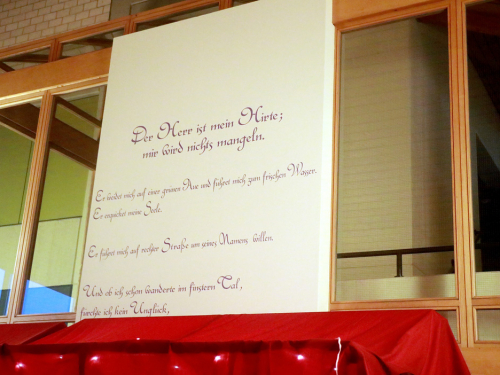 Der Herr ist mein Hirte;
mir wird nichts mangeln.
Er weidet mich auf einer grünen Aue und führet mich zum frischen Wasser.
Er erquicket meine Seele.
Er führet mich auf rechter Straße um seines Namens willen.
Und ob ich schon wanderte im finstern Tal,
fürchte ich kein Unglück,